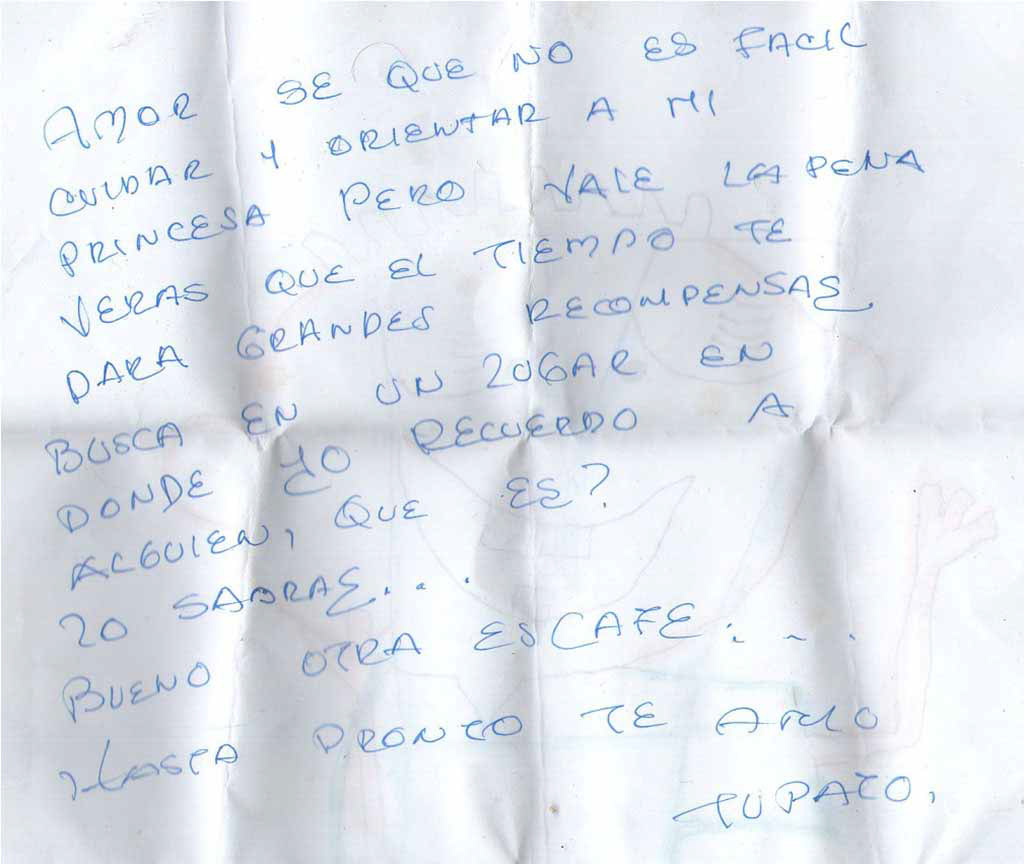 AMOR SE QUE NO ES FACIL
CUIDAR Y ORIENTAR A MI
PRINCESA PERO VALE LA PENA
VERAS QUE EL TIEMPO TE
DARA GRANDES RECOMPENSAS.
BUSCA EN UN LUGAR EN
DONDE YO RECUERDO A
ALGUIEN, QUE ES?
LO SABRAS...
BUENO OTRA ES CAFE....
HASTA PRONTO TE AMO
TU PATO,